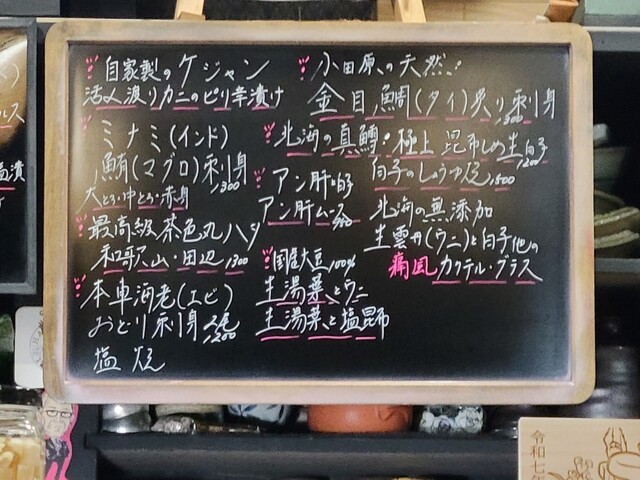 自家製のケジャン
活〆渡りカニのピリ辛漬け
ミナミ(インド)
鮪(マグロ)刺身
1,300
大とろ・中とろ・赤身
最高級 茶色丸ハタ
和歌山・田辺 1,300
本車海老(エビ)
おどり刺身 2尾
1,200
塩焼
小田原の天然!
金目鯛(タイ)炙り刺身
1,300
北海の真鱈!極上 昆布しめ生白子
1,200
白子のしょうゆ焼 1,500
アン肝
アン肝ムース
北海の無添加
生雲丹(ウニ)と白子他の
痛風カクテル・グラス
国産大豆100%
生湯葉とウニ
生湯葉と塩昆布
令和七年